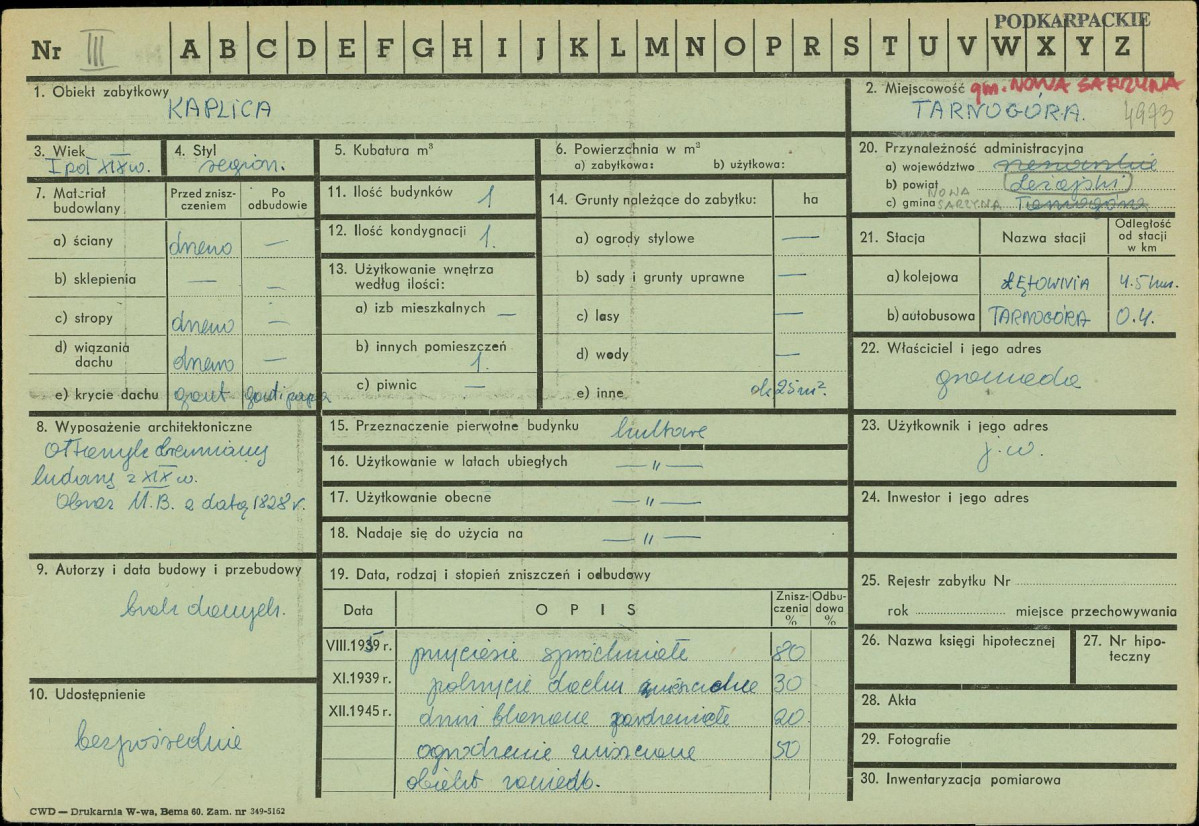 PODKARPACKIE
Nr III A B C D E F G H I J K L M N O P R S T U V W X Y Z
1. Obiekt zabytkowy
KAPLICA
2. Miejscowość gm. NOWA SARZYNA
TARNOGÓRA. 4973
3. Wiek
I poł XIX w.
4. Styl
region.
5. Kubatura m³
6. Powierzchnia w m²
a) zabytkowa: b) użytkowa:
20. Przynależność administracyjna
a) województwo rzeszowskie
b) powiat Leżajski
c) gmina NOWA SARZYNA Tarnogóra
7. Materiał budowlany
Przed zniszczeniem
Po odbudowie
a) ściany drewno —
b) sklepienia — —
c) stropy drewno —
d) wiązania dachu drewno —
e) krycie dachu gont gont i papa
11. Ilość budynków 1
12. Ilość kondygnacji 1.
13. Użytkowanie wnętrza według ilości:
a) izb mieszkalnych —
b) innych pomieszczeń 1.
c) piwnic —
14. Grunty należące do zabytku: ha
a) ogrody stylowe —
b) sady i grunty uprawne —
c) lasy —
d) wody —
e) inne ok 25 m².
21. Stacja
Nazwa stacji
Odległość od stacji w km
a) kolejowa ŁĘTOWNIA 4.5 km.
b) autobusowa TARNOGÓRA 0.4.
22. Właściciel i jego adres
gromada
8. Wyposażenie architektoniczne
Ołtarzyk drewniany
ludowy z XIX w.
Obraz M.B. z datą 1828 r.
15. Przeznaczenie pierwotne budynku kultowe
16. Użytkowanie w latach ubiegłych — „ —
17. Użytkowanie obecne — „ —
18. Nadaje się do użycia na — „ —
23. Użytkownik i jego adres
j.w.
24. Inwestor i jego adres
9. Autorzy i data budowy i przebudowy
brak danych.
10. Udostępnienie
bezpośrednie
19. Data, rodzaj i stopień zniszczeń i odbudowy
Data
OPIS
Zniszczenia %
Odbudowa %
VIII.1939 r. przyciesie spróchniałe 80
XI.1939 r. pokrycie dachu zniszczone 30
XII.1945 r. drzwi blaszane zardzewiałe 20
ogrodzenie zniszczone 50
obiekt zaniedb.
25. Rejestr zabytku Nr
rok miejsce przechowywania
26. Nazwa księgi hipotecznej
27. Nr hipoteczny
28. Akta
29. Fotografie
30. Inwentaryzacja pomiarowa
CWD — Drukarnia W-wa, Bema 60. Zam. nr 349-5162